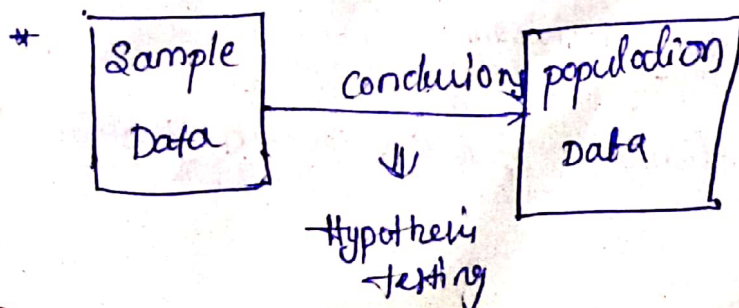 * Sample
Data
Conclusion
population
Data
⇓
Hypothesis
testing